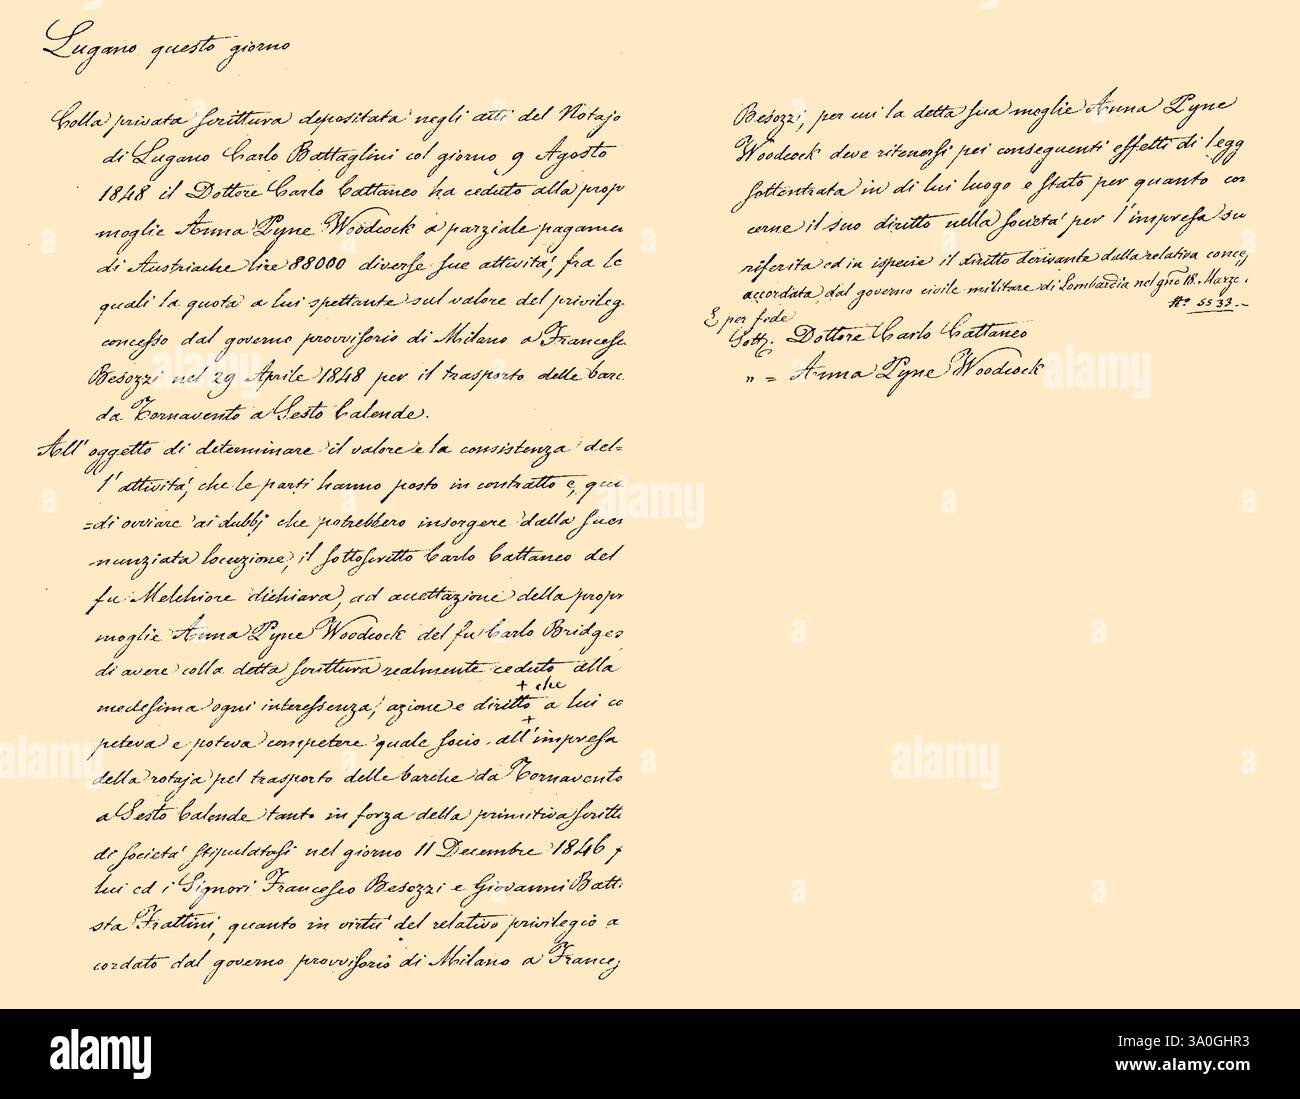 Lugano questo giorno
Colla privata scrittura depositata negli atti del Notajo
di Lugano Carlo Battaglini col giorno 9 Agosto
1848 il Dottore Carlo Cattaneo ha ceduto alla propr
moglie Anna Pyne Woodcock a parziale pagamen
di Austriache lire 88000 diverse sue attività, fra le
quali la quota a lui spettante sul valore del privileg
concesso dal governo provvisorio di Milano a Francesc
Besozzi nel 29 Aprile 1848 per il trasporto delle barc
da Tornavento a Sesto Calende.
All' oggetto di determinare il valore e la consistenza del=
l'attività, che le parti hanno posto in contratto e, quin
=di ovviare ai dubbj che potrebbero insorgere dalla suen
nunziata locuzione, il sottoscritto Carlo Cattaneo del
fu Melchiore dichiara, ad accettazione della propr
moglie Anna Pyne Woodcock del fu Carlo Bridges
di avere colla detta scrittura realmente ceduto alla
+ che
medesima ogni interessenza, azione e diritto a lui co
+
peteva e poteva competere quale socio all'impresa
della rotaja pel trasporto delle barche da Tornavento
a Sesto Calende tanto in forza della primitiva scritt
di società stipulatasi nel giorno 11 Decembre 1846 f
lui ed i Signori Francesco Besozzi e Giovanni Batti
sta Frattini, quanto in virtù del relativo privilegio a
cordato dal governo provvisorio di Milano a Frances
Besozzi, per cui la detta sua moglie Anna Pyne
Woodcock deve ritenersi pei conseguenti effetti di legg
sottentrata in di lui luogo e stato per quanto con
cerne il suo diritto nella società per l'impresa su
riferita ed in ispecie il diritto derivante dalla relativa conces
accordata dal governo civile militare di Lombardia nel gno 18. Marzo.
No 5533.-
E per fede
Sott. Dottore Carlo Cattaneo
" = Anna Pyne Woodcock
alamy
www.alamy.com
3A0GHR3